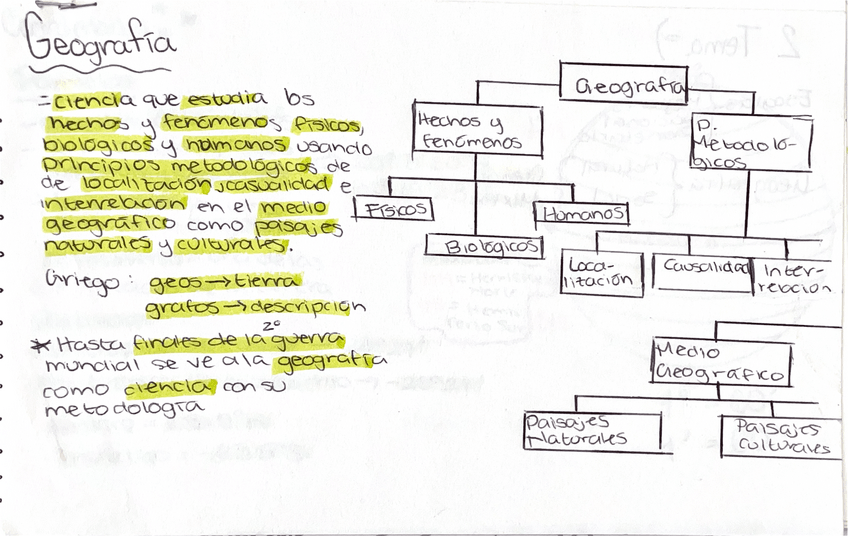 Geografía
= ciencia que estudia los
hechos y fenómenos físicos,
biológicos y humanos usando
principios metodológicos de
de localización, casualidad e
interrelación en el medio
geográfico como paisajes
naturales y culturales.
Griego: geos → tierra
grafos → descripción
2º
* Hasta finales de la guerra
mundial se ve a la geografía
como ciencia con su
metodología
Geografía
Hechos y
fenómenos
P.
Metodoló-
gicos
Físicos
Humanos
Biológicos
Loca-
lización
Causalidad
Inter-
relación
Medio
Geográfico
Paisajes
Naturales
Paisajes
Culturales